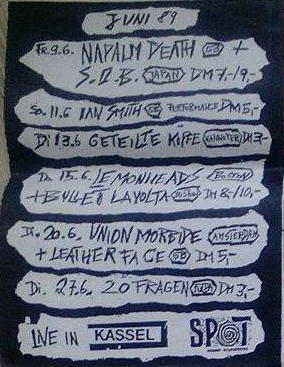 JUNI 89
Fr. 9.6. NAPALM DEATH GB +
S.O.B. JAPAN DM 7,-/9,-
So. 11.6 IAN SMITH GB PERFORMANCE DM 5,-
Di 13.6 GETEILTE KÖPFE DM 3,-
Do. 15.6. LEMONHEADS BOSTON
+ BULLET LAVOLTA BOSTON DM 8,-/10,-
Di. 20.6. UNION MORBIDE AMSTERDAM
+ LEATHERFACE GB DM 5,-
Di. 27.6. 20 FRAGEN DM 3,-
LIVE IN KASSEL SPOT